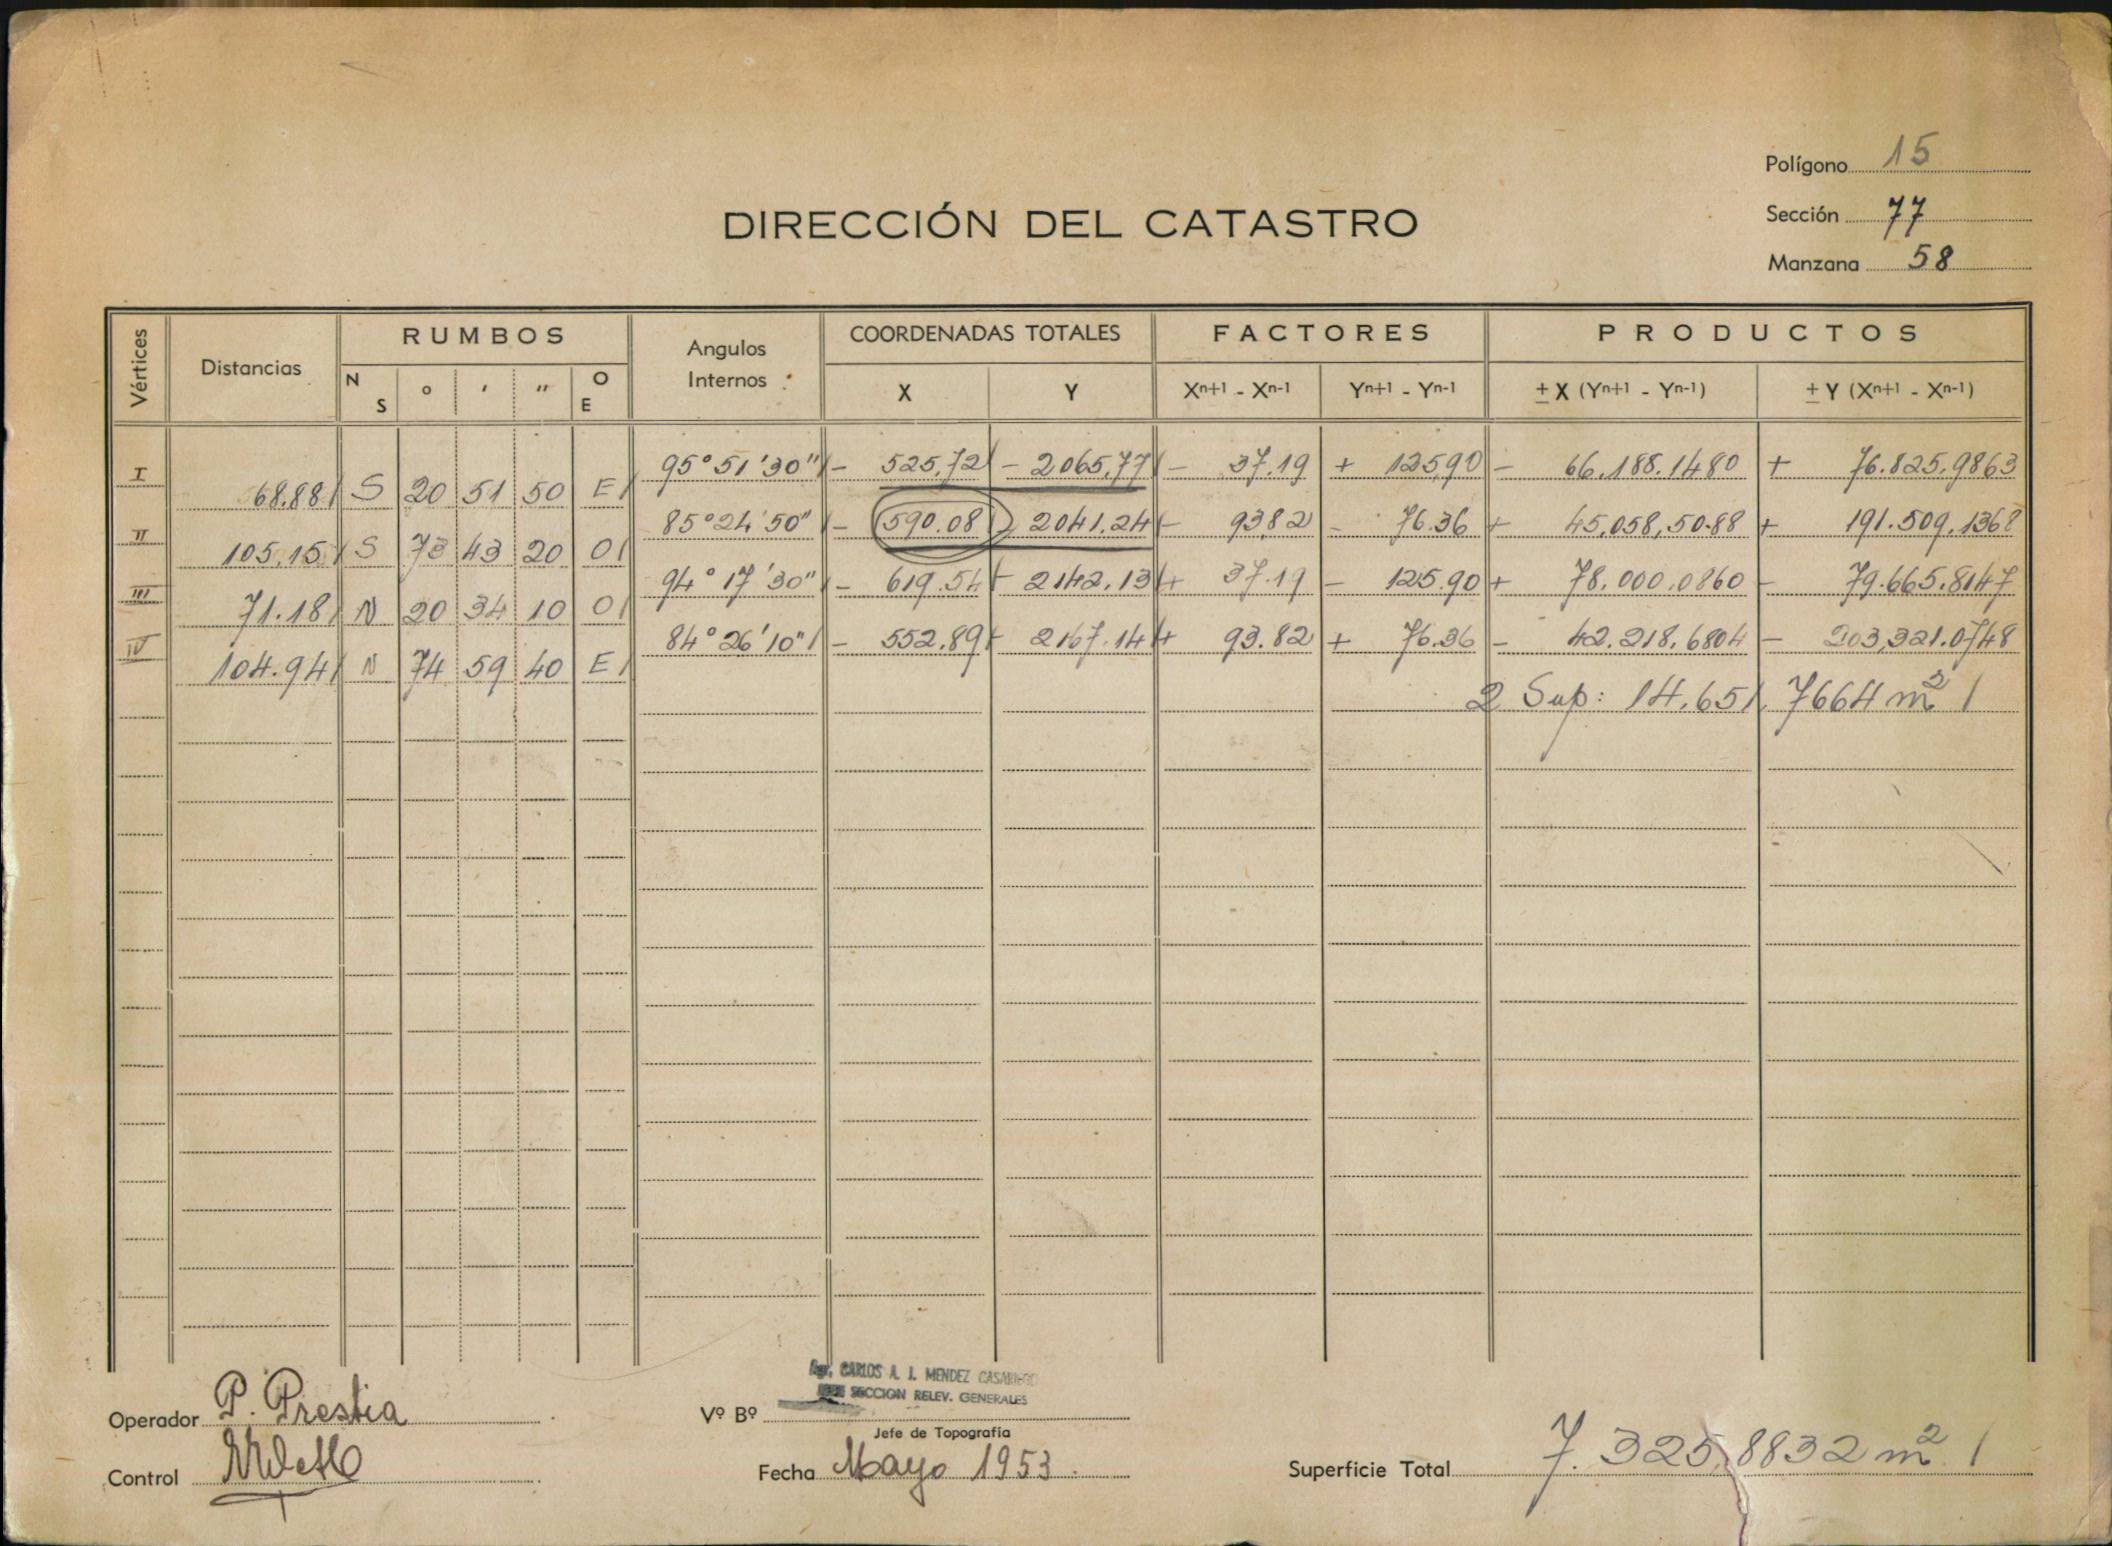 Polígono 15
Sección 77
Manzana 58
DIRECCIÓN DEL CATASTRO
Vértices Distancias RUMBOS Angulos Internos COORDENADAS TOTALES FACTORES PRODUCTOS
N S ° ' " O E X Y Xn+1 - Xn-1 Yn+1 - Yn-1 ± X (Yn+1 - Yn-1) ± Y (Xn+1 - Xn-1)
I 95°51'30" - 525,72 - 2065,77 - 37.19 + 125,90 - 66.188.1480 + 76.825,9863
68.88 S 20 51 50 E
II 85°24'50" - 590.08 - 2041.24 - 93,82 - 76.36 + 45,058,5088 + 191.509,1368
105,15 S 73 43 20 O
III 94°17'30" - 619.54 - 2142.13 + 37.19 - 125.90 + 78.000,0860 - 79.665.8147
71.18 N 20 34 10 O
IV 84°26'10" - 552.89 - 2167.14 + 93.82 + 76.36 - 42.218.6804 - 203,321.0748
104.94 N 74 59 40 E
2 Sup: 14.651,7664 m2
Operador P. Prestia
Control
Vº Bº
CARLOS A. J. MENDEZ
SECCION RELEV. GENERALES
Jefe de Topografía
Fecha Mayo 1953
Superficie Total 7.325,8832 m2